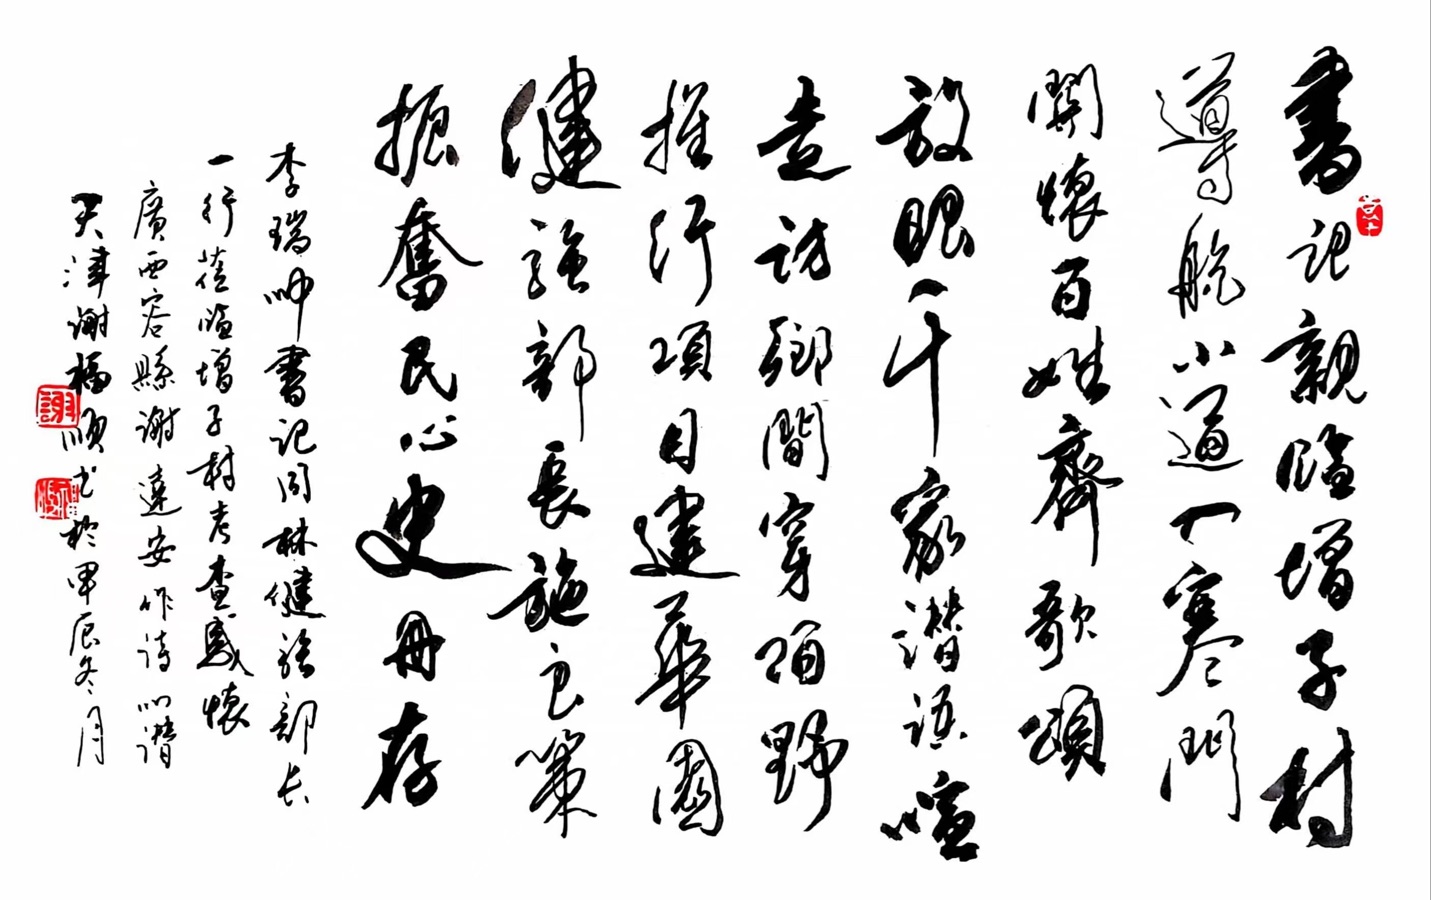 書記親臨增子村
導航小道一寒門
關懷百姓齊歌頌
放眼一千家譜語喧
走訪鄉間穿垌野
推行項目建華園
健強部長施良策
振奮民心史冊存
李瑞帅書记同林健強部长
一行蒞臨增子村考查感懷
廣西容縣謝達安作诗以譜
天津謝福順书於甲辰冬月
謝